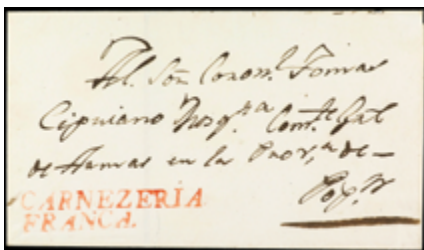 Al Señ Coron.l Tomas
Cipriano Mosq.ra Com.te Gal
de Armas en la Prov.a de
Pop.n
CARNEZERÍA
FRANCA.